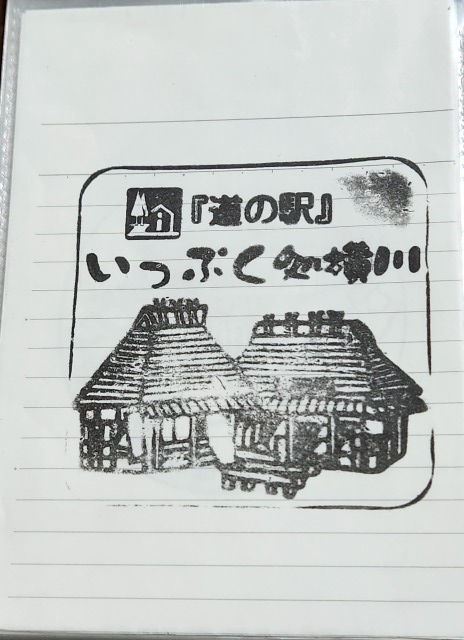 『道の駅』
いっぷく処横川